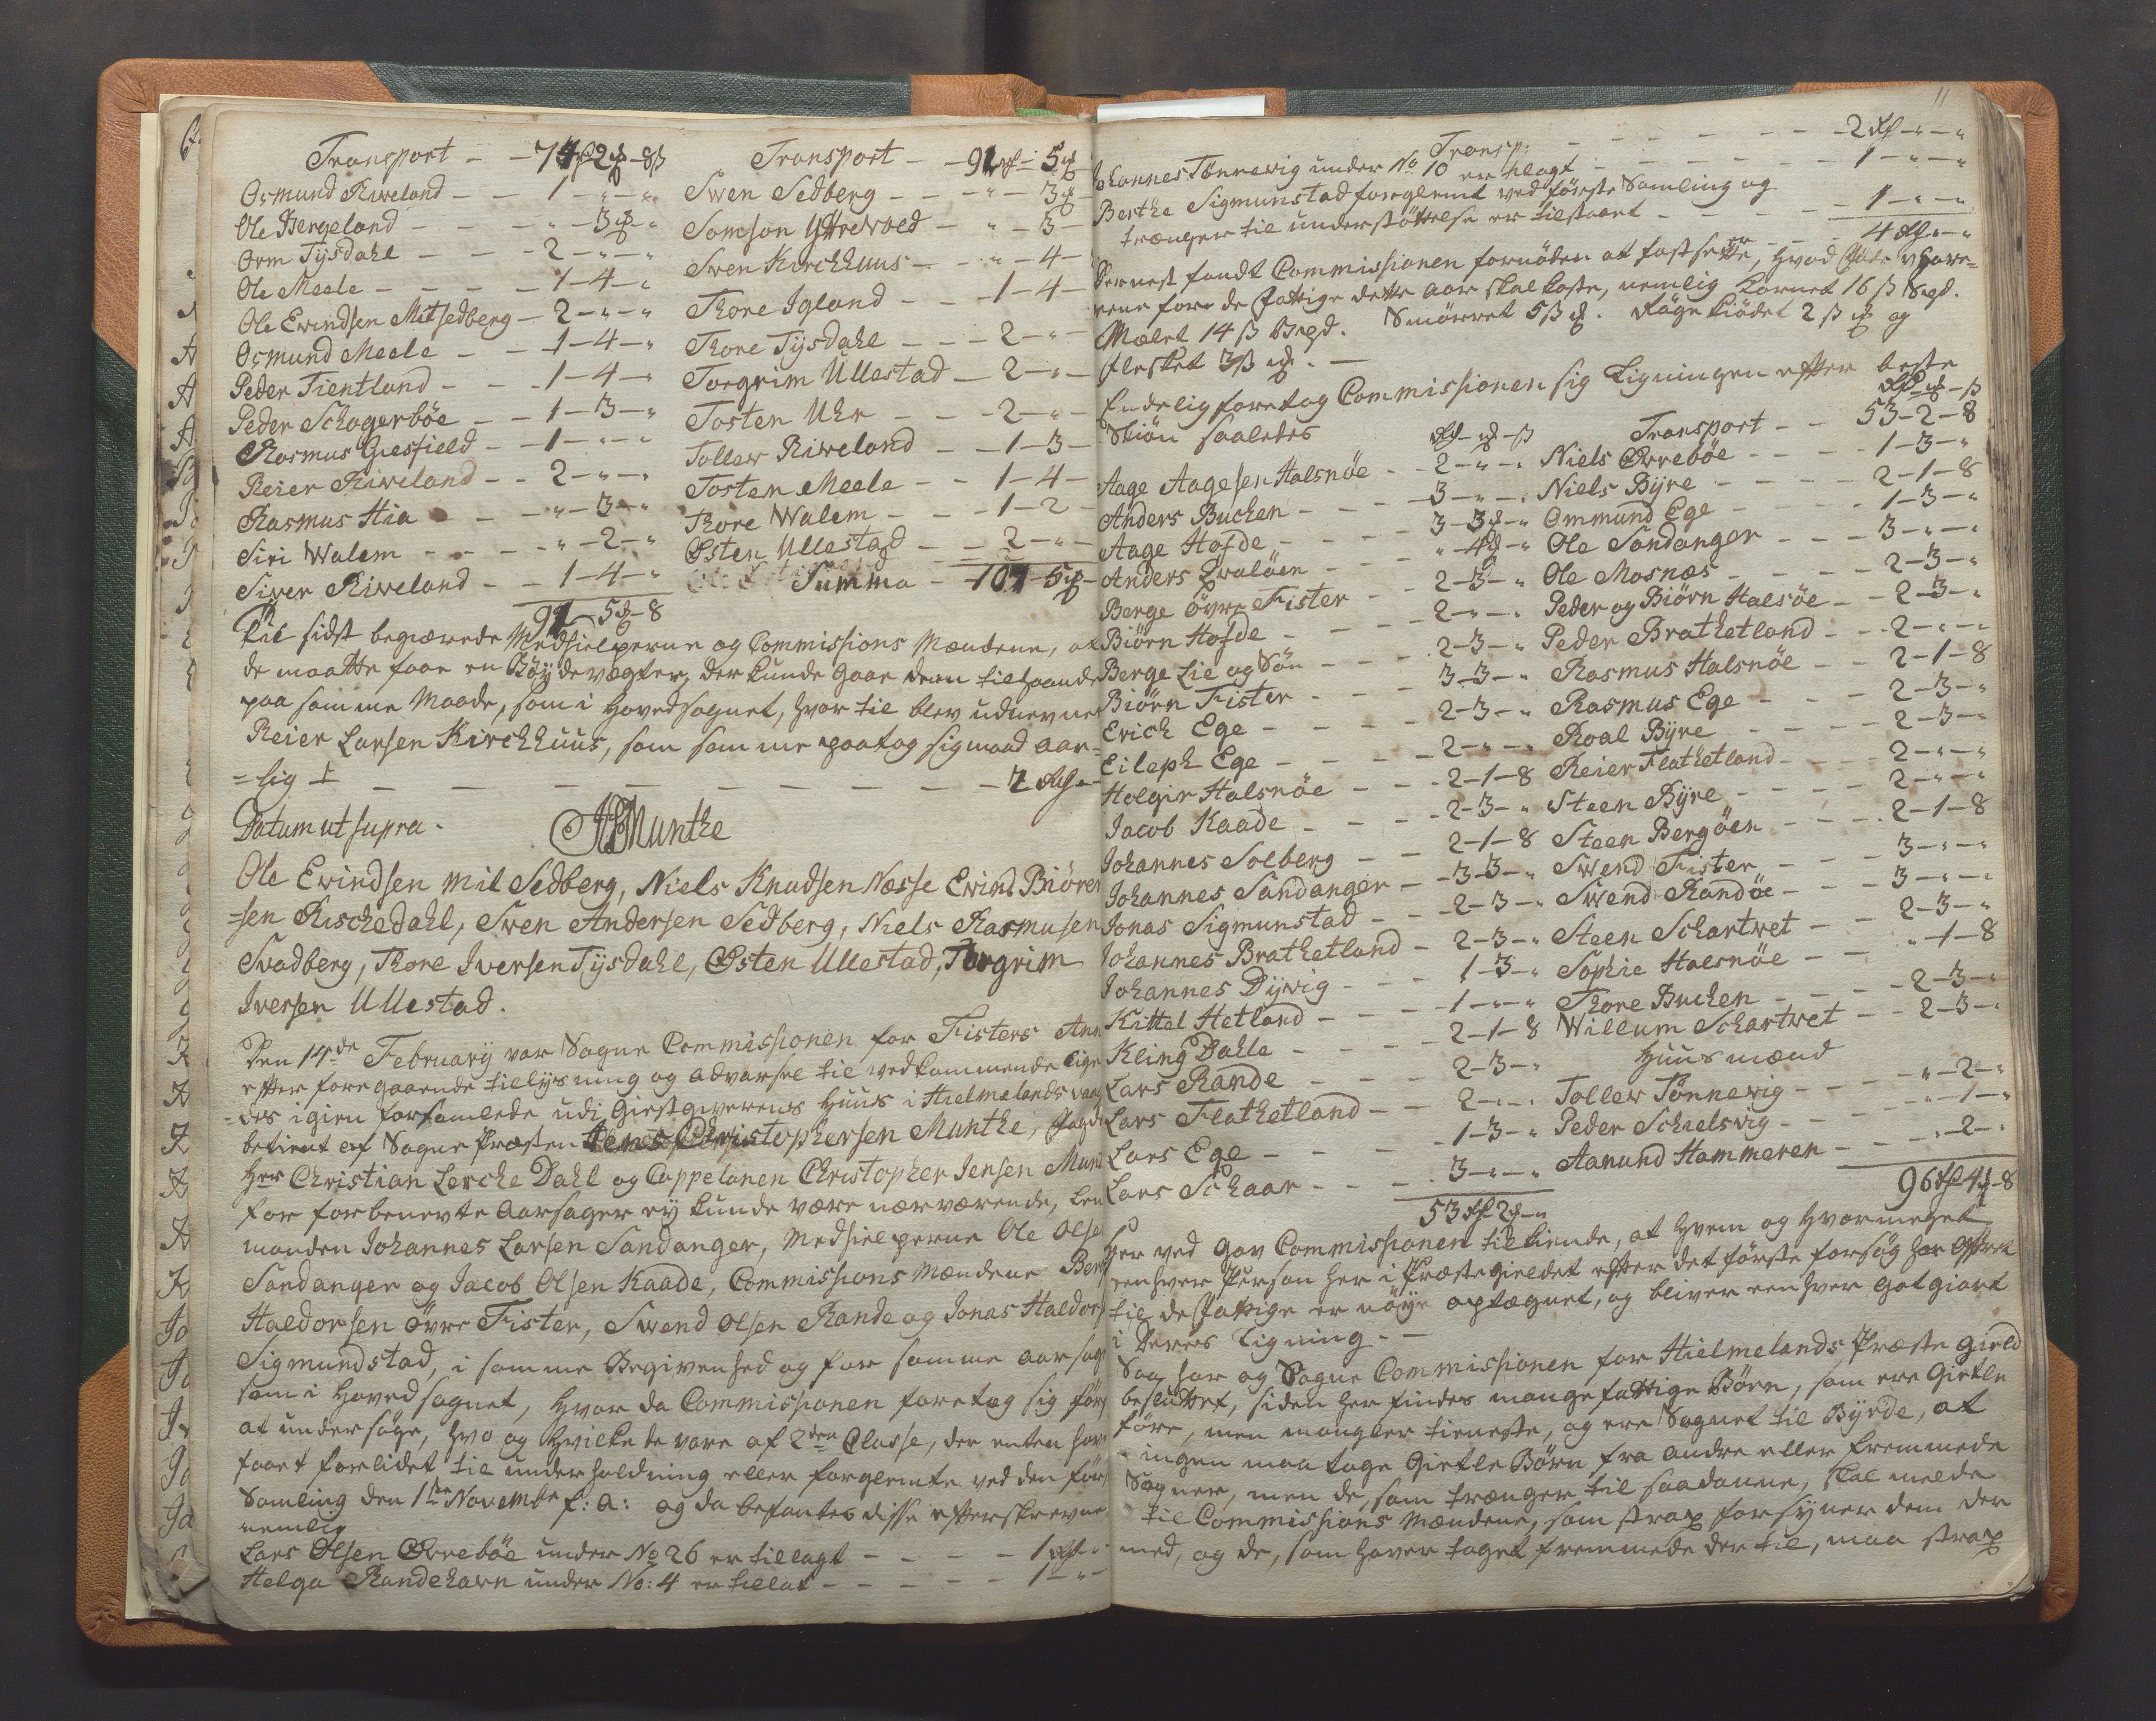 Transport - - 74 rd 2 ort - 8 ß
Osmund Riveland - - 1 - " - "
Ole Bergeland - - - " - 3 ort - "
Orm Tysdahl - - - 2 - " - "
Ole Meele - - - - 1 - 4 - "
Ole Evindsen Mitsedberg - 2 - " - "
Osmund Meele - - 1 - 4 - "
Peder Tientland - - - 1 - 4 - "
Peder Schogerbøe - - 1 - 3 - "
Rasmus Giesfield - 1 - " - "
Reier Riveland - - 2 - " - "
Rasmus Hia - - " - 3 - "
Siri Walem - - - " - 2 - "
Siver Riveland - - 1 - 4 - "
91 - 5 - 8
Transport - - 91 - 5
Swen Sedberg - - - " - 3
Samson Yttrevoed - " - 3 -
Sven Kirchhuus - - " - 4 -
Thore Igland - - 1 - 4 -
Thore Tysdahl - - - 2 - " -
Torgrim Ullestad - 2 - " -
Tosten Uhr - - - 2 - " -
Tollev Riveland - - 1 - 3 -
Tosten Meele - - 1 - 4 -
Thore Walem - - - 1 - 2 -
Østen Ullestad - - 2 - " -
Summa - 107 - 5
Til sidst begierede Medhielperne og Commissions Mændene, at
de maatte faae en Bøydevægter, der kunde gaae dem til haande
paa samme Maade, som i Hovedsognet, hvor til blev udnevnt
Reier Larsen Kirchhuus, som samme paatog sig mod aar-
=lig - - - - - - - - 2 Rd -
Datum ut supra.
JC Munthe
Ole Evindsen Mit Sedberg, Niels Knudsen Næsse Evind Biøren
=sen Rischedahl, Sven Andersen Sedberg, Niels Rasmusen
Svadberg, Thore Iversen Tysdahl, Østen Ullestad, Torgrim
Iversen Ullestad.
Den 14de February var Sogne Commissionen for Fisters Ann
efter foregaaende tillysning og advarsel til vedkommende lige
=des igien forsamlede udi Giestgiverens Huus i Hielmelands vaag
betient af Sogne Præsten Jens Christophersen Munthe,
Her Christian Lerche Dahl og Cappelanen Christopher Jensen Mun
for forbenevte Aarsager ey kunde være nærværende, Len
manden Johannes Larsen Sandanger, Medhielperne Ole Olse
Sandanger og Jacob Olsen Kaade, Commissions Mændene Berge
Haldorsen Øvre Fister, Swend Olsen Rande og Jonas Haldors
Sigmundstad, i samme Begivenhed og for samme aarsag
som i Hovedsognet, hvor da Commissionen foretog sig før
at undersøge, hvo og hvilke de vare af 2den Classe, der enten har
faaet forlidet til underholdning eller forglemte ved den før
Samling den 1ste November f: a: og da befantes disse efterskrevne
nemlig
Lars Olsen Ørrebøe under No 26 er tillagt - - - - 1 Rd - "
Helga Randehavn under No: 4 er tillat - - - - - 1 - " -
11
Transp: - - - - - - 2 Rd - " - "
Johannes Tønnevig under No 10 er tilagt - - - - - 1 - " - "
Berthe Sigmunstad forglemt ved første Samling og
trænger til understøttelse er tilstaaet - - - - 1 - " - "
4 Rd " - "
Dernest fandt Commissionen fornøden at fastsette, hvad
rene for de Fattige dette aar skal koste, nemlig Kornet 16 ß
Malet 14 ß Smørret 5 ß Fæge kiødet 2 ß og
Flesket 3 ß
Endelig foretog Commissionen sig Ligningen efter beste
Skiøn saaledes
Aage Aagesen Halsnøe - - 2 - " - "
Anders Buchen - - - 3 - " - "
Aage Hofde - - - 3 - 3 - "
Anders Qvaløen - - - " - 4 - "
Berge Øvre Fister - - 2 - 3 - "
Biørn Hofde - - - 2 - " - "
Berge Lie og Søn - - - 2 - 3 - "
Biørn Fister - - - 3 - 3 - "
Erich Ege - - - - 2 - 3 - "
Eileph Ege - - - - 2 - " - "
Holgir Halsnøe - - - 2 - 1 - 8
Jacob Kaade - - - - 2 - 3 - "
Johannes Solberg - - 2 - 1 - 8
Johannes Sandanger - - 3 - 3 - "
Jonas Sigmunstad - - - 2 - 3 - "
Johannes Brathetland - 2 - 3 - "
Johannes Dyvig - - - 1 - 3 - "
Kittel Hetland - - - 1 - " - "
Kling Dahle - - - - 2 - 1 - 8
Lars Rande - - - 2 - 3 - "
Lars Flathetland - - 2 - " - "
Lars Ege - - - - 1 - 3 - "
Lars Schaar - - - - 3 - " - "
53 Rd 2 - "
Transport - - 53 - 2 - 8
Niels Ørrebøe - - - - 1 - 3 - "
Niels Byre - - - - 2 - 1 - 8
Ommund Ege - - - - 1 - 3 - "
Ole Sandanger - - - 3 - " - "
Ole Mosnæs - - - - 2 - 3 - "
Peder og Biørn Halsøe - - 2 - 3 - "
Peder Brathetland - - - 2 - " - "
Rasmus Halsnøe - - 2 - 1 - 8
Rasmus Ege - - - 2 - 3 - "
Roal Byre - - - 2 - 3 - "
Reier Flathetland - - - 2 - " - "
Steen Byre - - - - 2 - " - "
Steen Bergøen - - - - 2 - 1 - 8
Swend Fister - - - 3 - " - "
Swend Randøe - - - 3 - " - "
Steen Schartvet - - 2 - 3 - "
Sophie Halsnøe - - " - 1 - 8
Thore Buchen - - - - 2 - 3 - "
Willum Schartvet - - 2 - 3 - "
Huusmænd
Tollev Tønnevig - - - " - 2 - "
Peder Schielsvig - - - " - 1 - "
Aanund Hammeren - - - " - 2 - "
96 Rd 4 - 8
Her ved gav Commissionen tilkiende, at hvem og hvormeget
eenhver Person her i Præstegieldet efter det første forsøg har
til de Fattige er nøye optegnet, og bliver eenhver got giort
i Deres Ligning. -
Saa har og Sogne Commissionen for Hielmelands Præste gield
besluttet, siden her findes mange fattige Børn, som ere Gietle
føre, men mangler tieneste, og ere Sognet til Byrde, at
ingen maa tage Gietle Børn fra andre eller fremmede
Sogner, men de, som trænger til saadanne, skal melde
til Commissions Mændene, som strax forsyner dem der
med, og de, som haver taget fremmede der til, maa strax